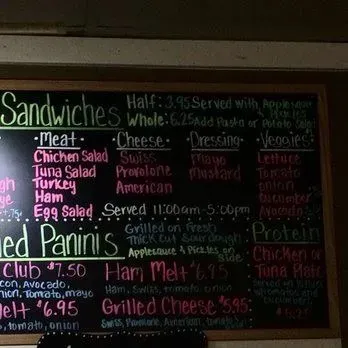 Sandwiches Half: 3.95 Served with Applesauce & Pickles
Whole: 6.25 Add Pasta or Potato Salad
·Meat· ·Cheese· ·Dressing· ·Veggies·
Chicken Salad Swiss Mayo Lettuce
Tuna Salad Provolone Mustard Tomato
Turkey American onion
Ham cucumber
Egg Salad Served 11:00am-5:00pm Avocado
ed Paninis Grilled on Fresh Thick Cut Sourdough
Applesauce & Pickles on Side
Protein
Club $7.50 Ham Melt $6.95 Chicken or
con, Avocado, Ham, Swiss, tomato, onion Tuna Plate
nion, Tomato, mayo served on
Melt $6.95 Grilled Cheese $5.95 tomatoes and cucumbers
, tomato, onion Swiss, Provolone, American, tomato